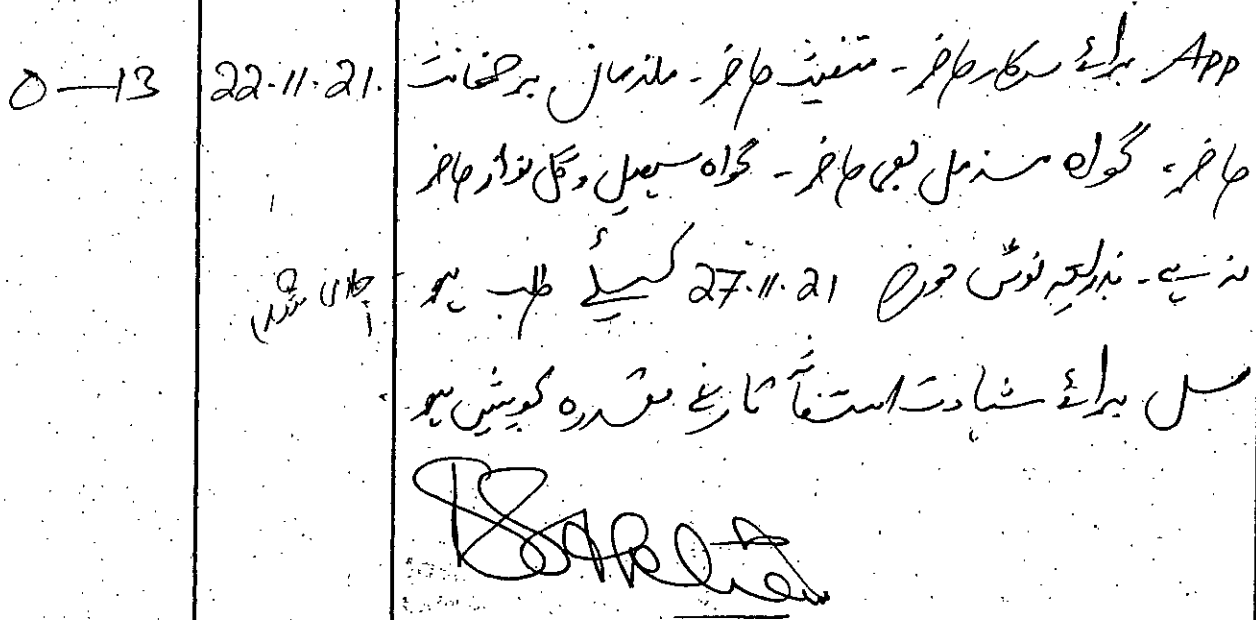 0—13
22.11.21.
App برائے سرکار حاضر۔ مستغیث حاضر۔ ملزمان بر ضمانت
حاضر۔ گواہ مزمل بھی حاضر۔ گواہ سہیل و گل نواز حاضر
نہ ہے۔ بذریعہ نوٹس مورخہ 27.11.21 کیلئے طلب ہو
جاری شد
مسل برائے شہادت استغاثہ تاریخ مقررہ کو پیش ہو